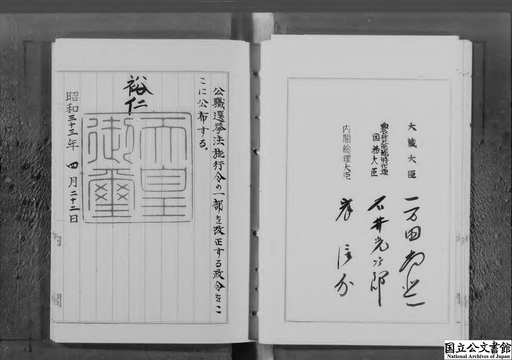 大蔵大臣 一万田尚登
農林大臣臨時代理
国務大臣 石井光次郎
内閣総理大臣 岸信介
公職選挙法施行令の一部を改正する政令をこ
こに公布する。
裕仁
天皇
御璽
昭和三十三年 四月二十二日
国立公文書館
National Archives of Japan